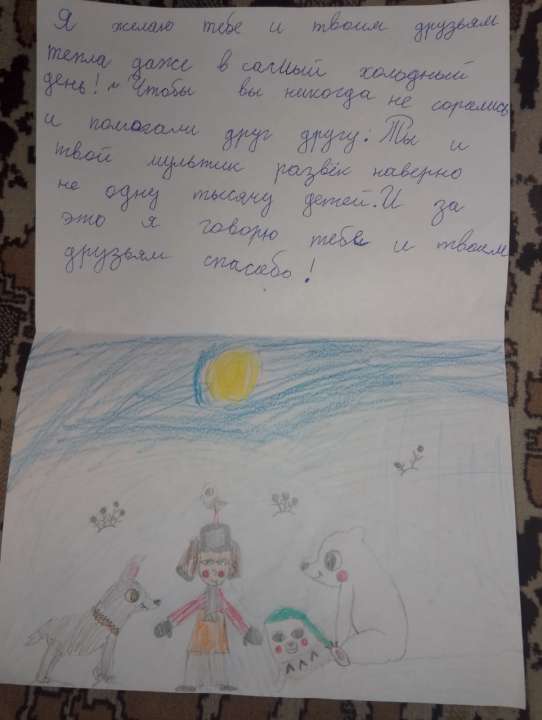 Я желаю тебе и твоим друзьям
тепла даже в самый холодный
день! Чтобы вы никогда не сорались
и помогали друг другу. Ты и
твой мультик развёк наверно
не одну тысячу детей. И за
это я говорю тебе и твоим
друзьям спасибо!